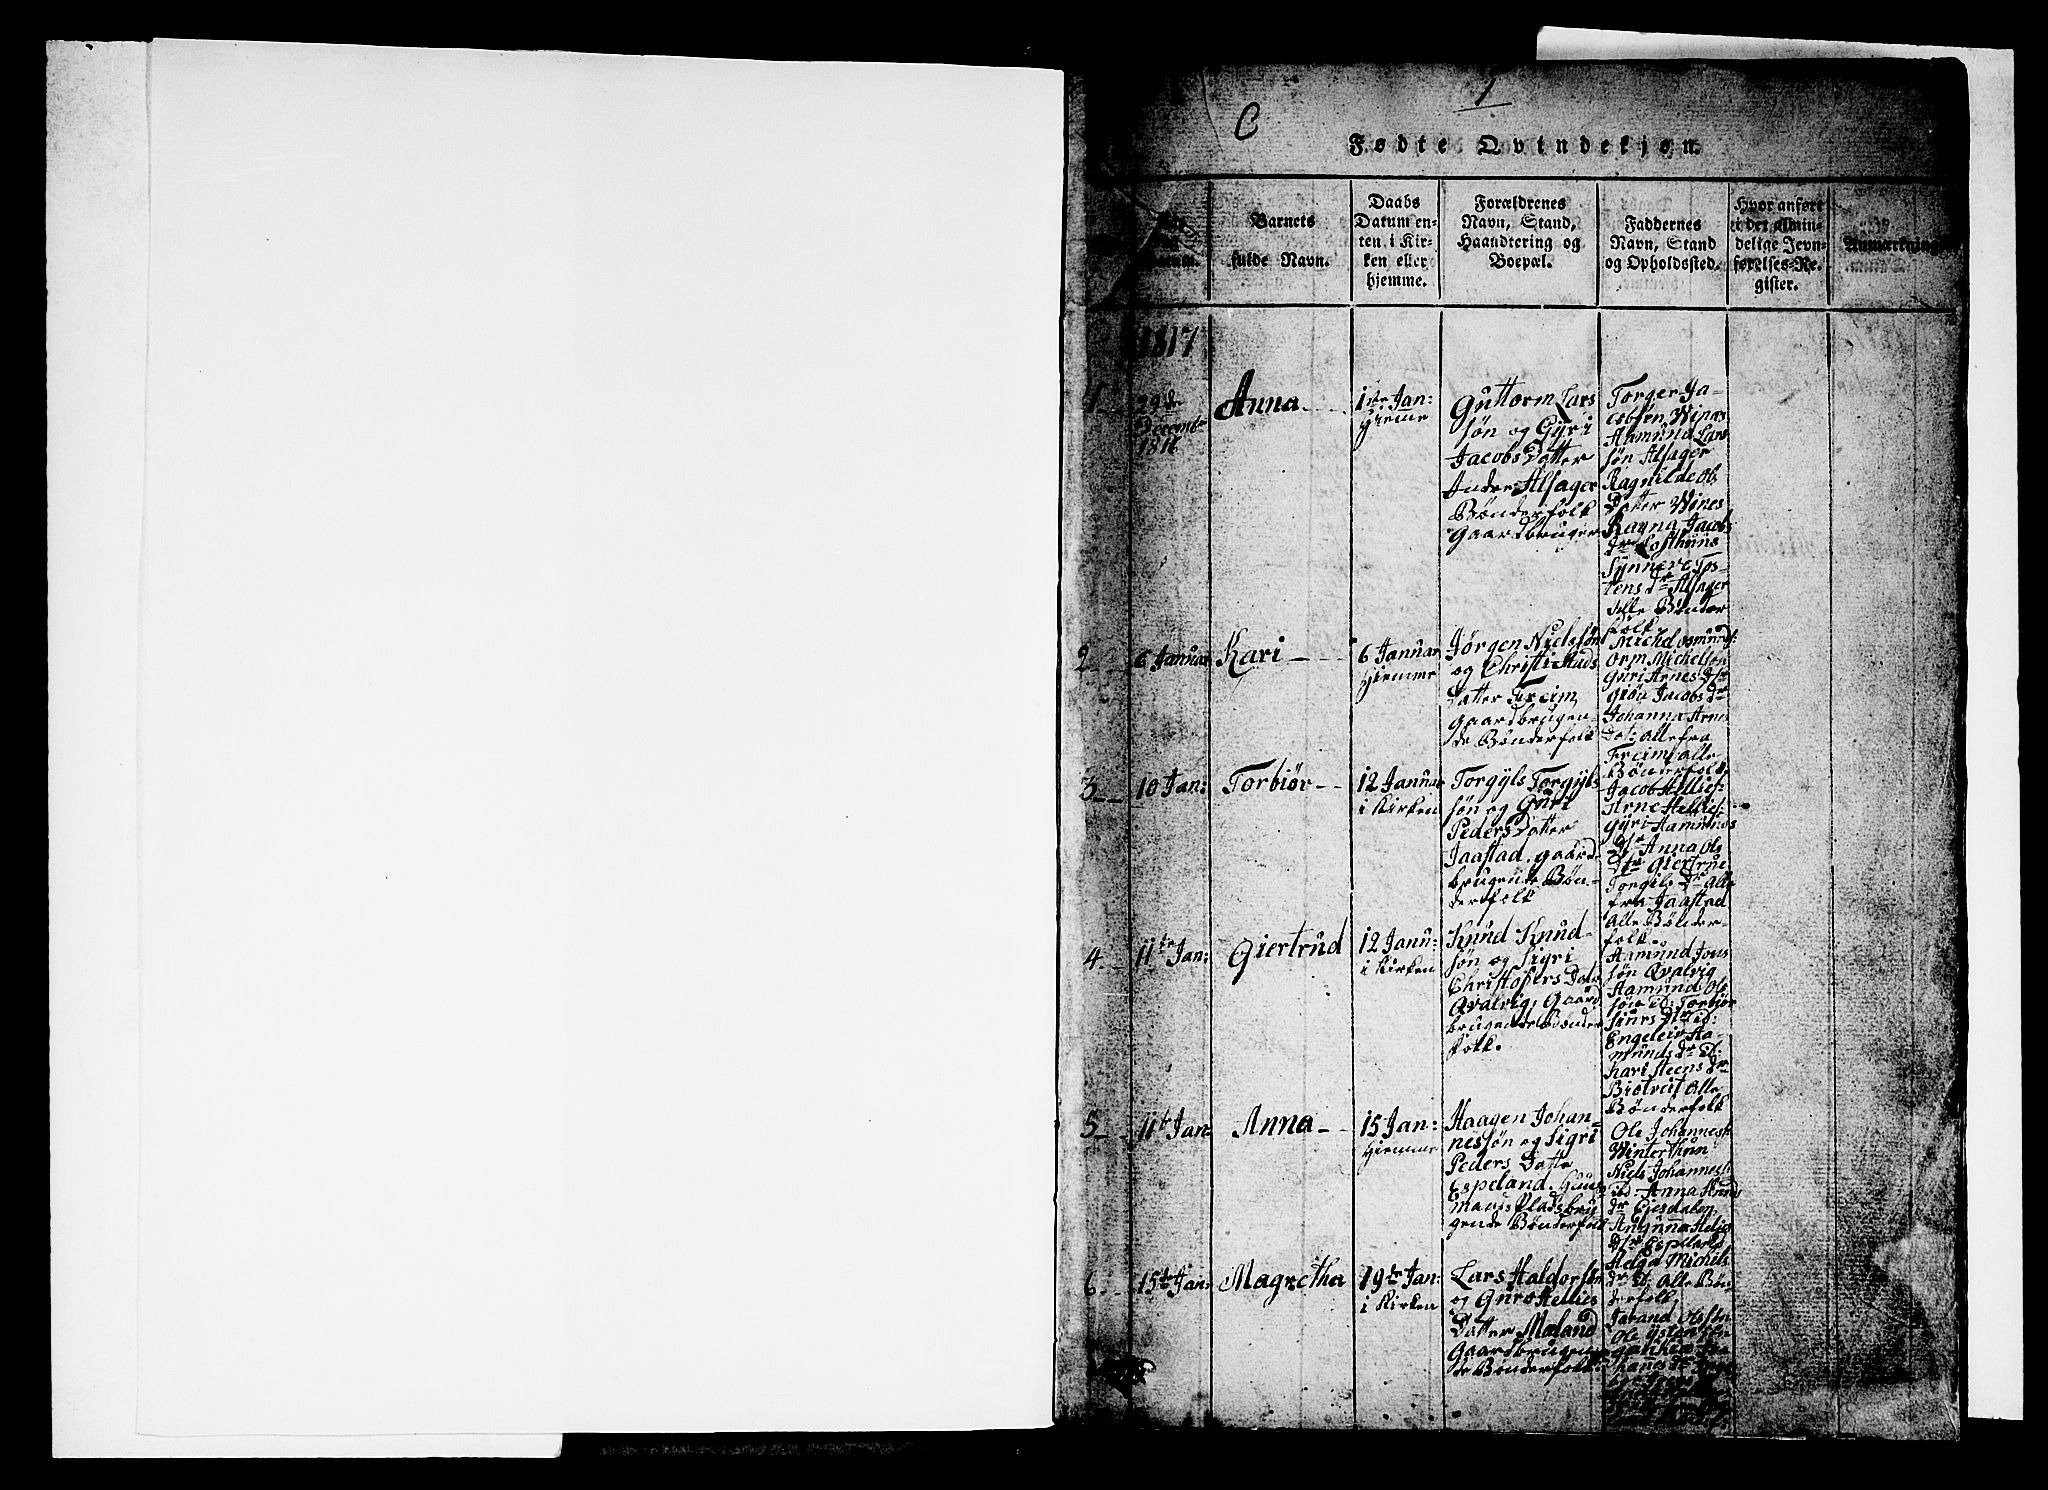 1
C
Fødte Qvindekjøn.
Barnets
fulde Navn.
Daabs
Datum en-
ten i Kir-
ken eller
hjemme.
Forældrenes
Navn, Stand,
Haandtering og
Boepæl.
Faddernes
Navn, Stand
og Opholdssted.
Hvor anført
i det Almin-
delige Jevn-
førelses-Re-
gister.
Anmærkning
1817
1
29de
Decembr
1816
Anna
1ste Jan:
Hieme
Guttorm Lars
søn og Gyri
Jacobs Datter
Alsager
Bønderfolk
Gaardbruger
Torger Ja-
cobsen Wines
Aamund Lars
søn Alsager
Ragnilde Ols
Datter Wines
Ragna Jacobs
dr Losthuus
Synneve Tos-
tens dr Alsager
alle Bønder
folk.
2
6 Januar
Kari
6 Januar
Hiemme
Jørgen Nielssøn
og Christi
Datter Freim
gaardbrugen-
de Bønderfolk
Michel Osmunds:
Orm Michelsøn
Guri Arnes Dtr
Jacobs dr
Johanna Arnes
Dat: alle fra
Freim alle
Bønderfolk
3
10 Jan:
Torbiør
12 Januar
i Kirken
Torgyls Torgyls
søn og Guri
Peders Datter
Jaastad. gaard-
brugende Bøn-
derfolk
Jacob Hellies:
Arne Hellies:
Gyri Aamunds
Dtr Anna Ols
Dtr Giertrue
Torgils Dr Alle
fra Jaastad
alle Bønder-
folk.
4
11te Jan:
Giertrud
12 Janu:
i Kirken
Knud Knud-
søn og Sigri
Christophers Datr
Qvalvig, Gaard
brugende Bønder
folk.
Aamund Jons
søn Qvalvig
Aamund Ols
søn id: Torbiør
Siurs Dtr id:
Engeleiv Aa-
munds dr id:
Kari Steens dr
alle
Bønderfolk
5
11te Jan:
Anna
15 Jan:
Hiemme
Haagen Johan-
nessøn og Sigri
Peders Datte
Espeland. Huus
mands Pladsbru
gende Bønderfolk
Ole Johannes
Winterthun
Niels Johannes
id: Anna Knud
dr Eiesdalen
Hellies
Dtr Espeland
Helga Michels
dr id: Alle Bøn-
derfolk
6
15te Jan:
Magretha
19te Jan:
i Kirken
Lars Haldorsøn
og Guro Hellies
Datter Mæland
Gaardbrugen-
de Bønderfolk
Jarand Olssen
Ole